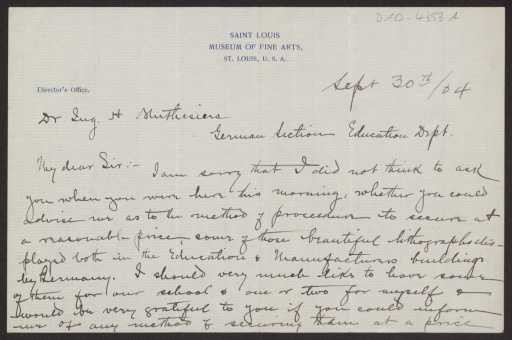 D1D-4353 A
SAINT LOUIS
MUSEUM OF FINE ARTS,
ST. LOUIS, U. S. A.
Director's Office.
Sept 30th/04
Dr Ing. H Muthesiers
German Section Education Dept.
My dear Sir:- I am sorry that I did not think to ask
you when you were here this morning, whether you could
advise me as to the method of procedure to secure at
a reasonable price, some of those beautiful lithographs dis-
played both in the Education & Manufacturers buildings
by Germany. I should very much like to have some
of them for our school & one or two for myself &
would be very grateful to you if you could inform
me of any method of securing them at a price